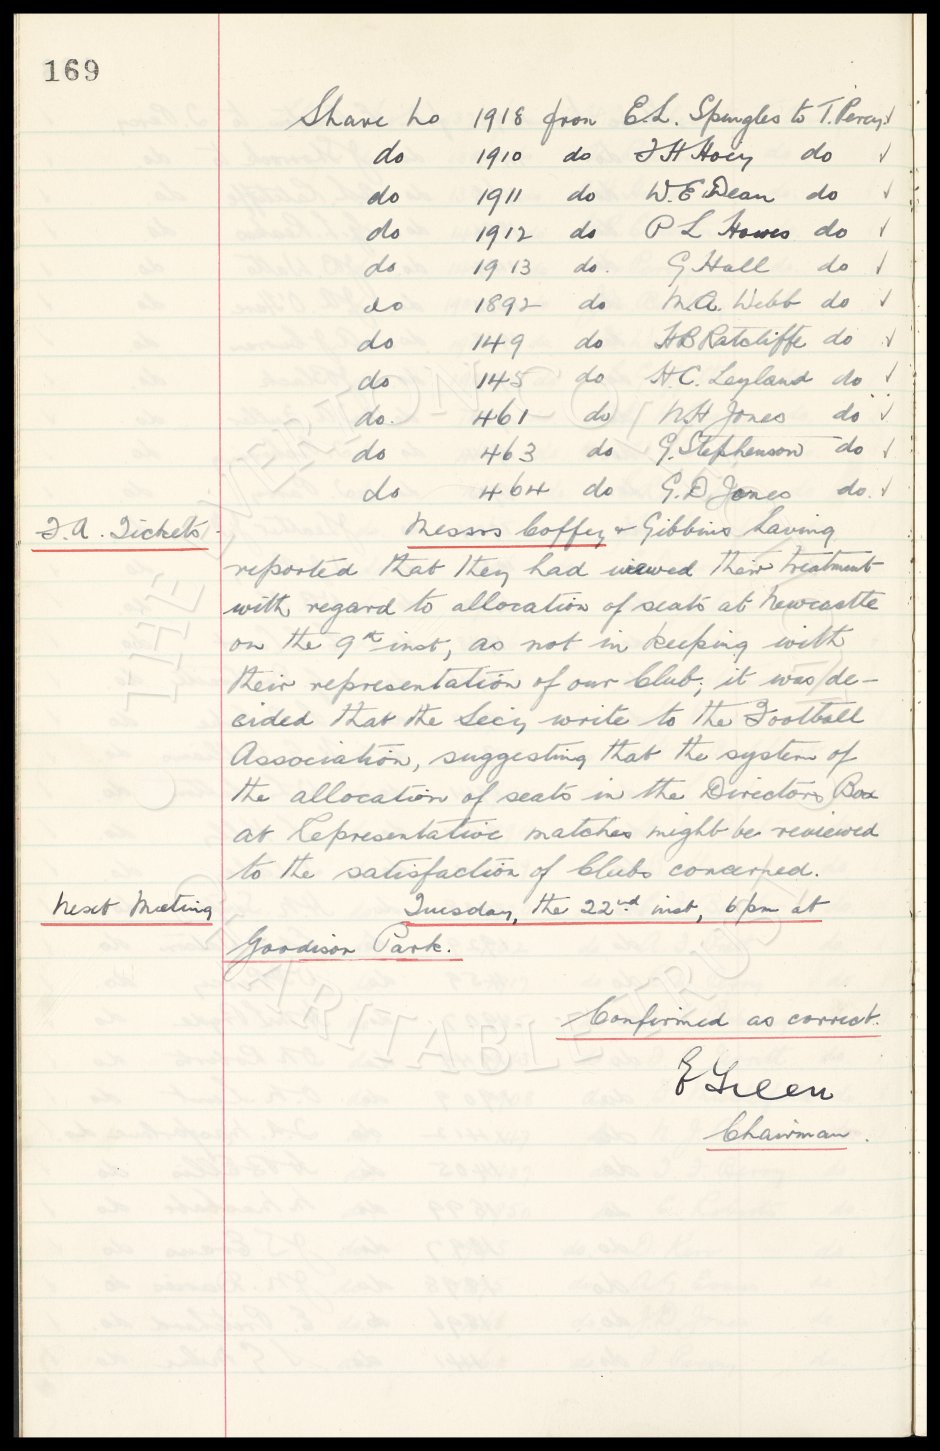 169
Share No 1918 from E.L. Spungles to T. Percy ✓
do 1910 do F H Hoey do ✓
do 1911 do W.E. Dean do ✓
do 1912 do P L Howes do ✓
do 1913 do. G Hall do ✓
do 1892 do M.A. Webb do ✓
do 149 do H B Ratcliffe do ✓
do 145 do H.C. Leyland do ✓
do. 461 do W H Jones do ✓
do 463 do G. Stephenson do ✓
do 464 do G. D Jones do. ✓
F.A. Tickets - Messrs Coffey & Gibbins having
reported that they had viewed their treatment
with regard to allocation of seats at Newcastle
on the 9th inst, as not in keeping with
their representation of our Club; it was de-
cided that the Secy write to the Football
Association, suggesting that the system of
the allocation of seats in the Directors Box
at Representative matches might be reviewed
to the satisfaction of Clubs concerned.
Next Meeting Tuesday, the 22nd inst, 6 pm at
Goodison Park.
Confirmed as correct.
E Green
Chairman.
THE EVERTON COLLECTION CHARITABLE TRUST